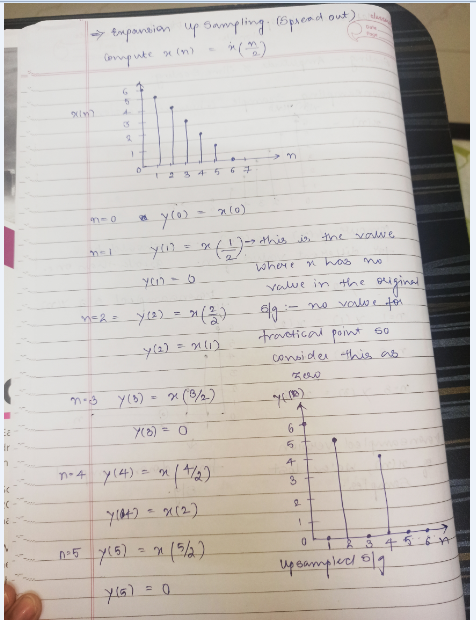 ⇒ Expansion up Sampling. (Spread out)
Compute x(n) = x(n/2)
x(n)
6
5
4
3
2
1
0 1 2 3 4 5 6 7 → n
n=0 y(0) = x(0)
n=1 y(1) = x(1/2) → this is the value
where x has no
y(1) = 0
value in the original
n=2 = y(2) = x(2/2)
s/g :- no value for
fractical point so
y(2) = x(1)
consider this as
zero
n=3 y(3) = x(3/2)
y(3) = 0
n=4 y(4) = x(4/2)
y(4) = x(2)
n=5 y(5) = x(5/2)
y(5) = 0
6
5
4
3
2
1
0 1 2 3 4 5 6 n
Upsampled s/g